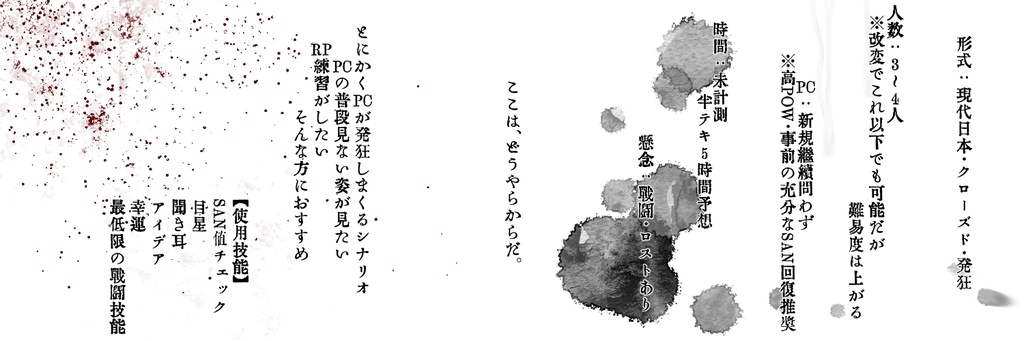 形式：現代日本・クローズド・発狂
人数：3～4人
※改変でこれ以下でも可能だが
難易度は上がる
PC：新規継続問わず
※高POW・事前の充分なSAN回復推奨
時間：未計測
半テキ5時間予想
懸念：戰闘・ロストあり
ここは、どうやらからだ。
とにかくPCが発狂しまくるシナリオ
PCの普段見ない姿が見たい
RP練習がしたい
そんな方におすすめ
【使用技能】
SAN値チェック
目星
聞き耳
アイデア
幸運
最低限の戰闘技能